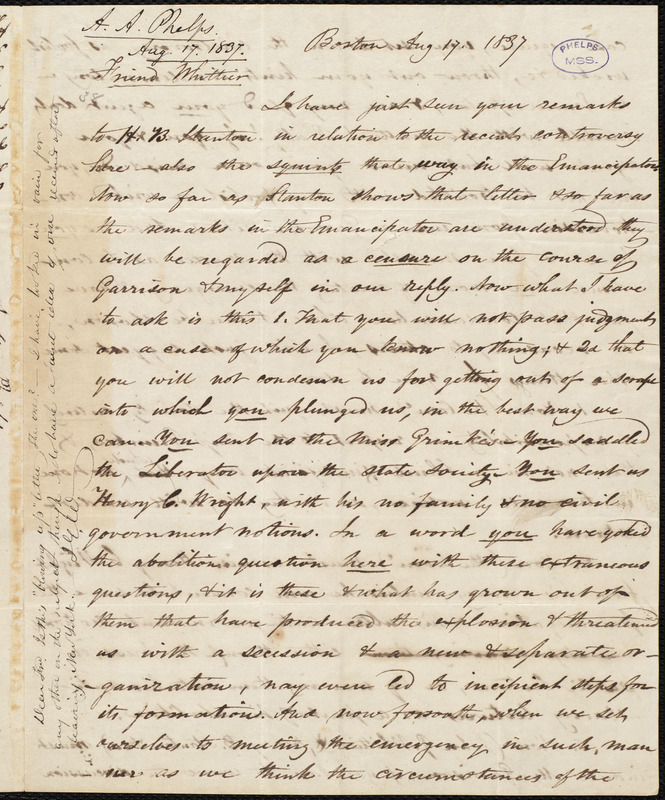 A. A. Phelps.
Aug. 17. 1837.
Boston Aug 17. 1837
PHELPS
MSS.
Friend Whittier
I have just seen your remarks
to H B. Stanton in relation to the recent controversy
here – also the squints that way in the Emancipator
Now so far as Stanton shows that letter & so far as
the remarks in the Emancipator are understood they
will be regarded as a censure on the course of
Garrison & myself in our reply. Now what I have
to ask is this 1. That you will not pass judgment
on a case of which you know nothing; & 2d that
you will not condemn us for getting out of a scrape
into which you plunged us, in the best way we
can. You sent us the Miss Grimké's – You saddled
the Liberator upon the state society. You sent us
Henry C. Wright, with his no family & no civil
government notions. In a word you have yoked
the abolition question here with these extraneous
questions, & it is these & what has grown out of
them that have produced the explosion & threatened
us with a secession & a new & separate or-
ganization, nay even led to incipient steps for
its formation. And now forsooth, when we set
ourselves to meeting the emergency in such man
ner as we think the circumstances of the
Dear Sir. Is this letter there? I have looked in vain for
any other on the subject, here to have a idea of one
New York.